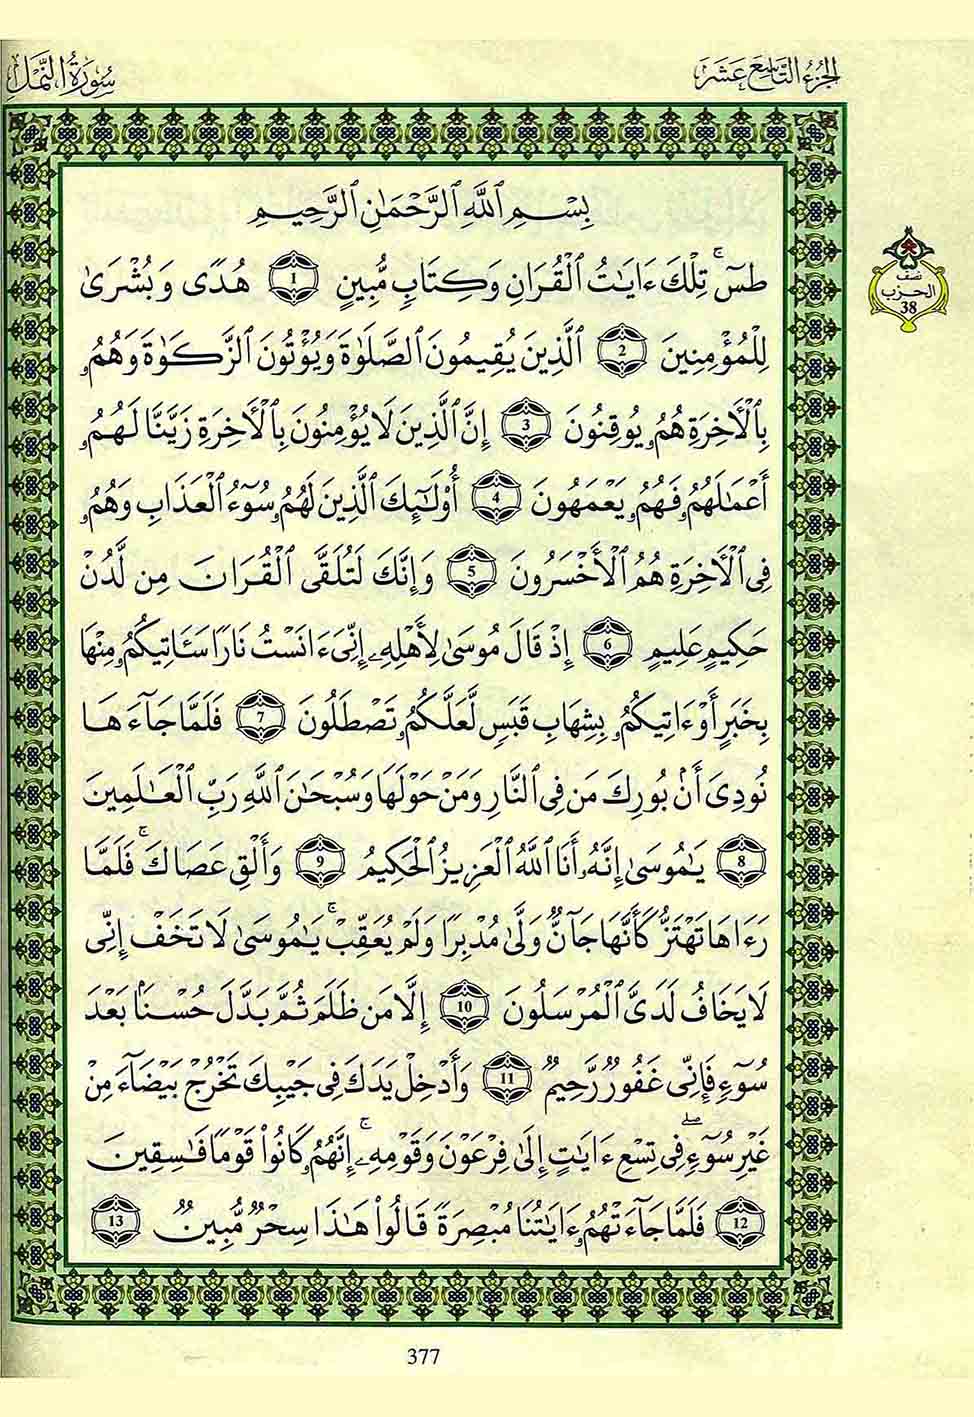 الجزء التاسع عشر
سُورَةُ النَّمْلِ
بِسْمِ ٱللَّهِ ٱلرَّحْمَٰنِ ٱلرَّحِيمِ
طسٓۚ تِلْكَ ءَايَٰتُ ٱلْقُرَانِ وَكِتَابٍ مُّبِينٍ 1 هُدًى وَبُشْرَىٰ
لِلْمُؤْمِنِينَ 2 ٱلَّذِينَ يُقِيمُونَ ٱلصَّلَوٰةَ وَيُؤْتُونَ ٱلزَّكَوٰةَ وَهُمُۥ
بِٱلْأَخِرَةِ هُمُۥ يُوقِنُونَ 3 إِنَّ ٱلَّذِينَ لَا يُؤْمِنُونَ بِٱلْأَخِرَةِ زَيَّنَّا لَهُمُۥ
أَعْمَٰلَهُمُۥ فَهُمُۥ يَعْمَهُونَ 4 أُوْلَٰٓئِكَ ٱلَّذِينَ لَهُمُۥ سُوٓءُ ٱلْعَذَابِ وَهُمُۥ
فِى ٱلْأَخِرَةِ هُمُ ٱلْأَخْسَرُونَ 5 وَإِنَّكَ لَتُلَقَّى ٱلْقُرَانَ مِن لَّدُنْ
حَكِيمٍ عَلِيمٍ 6 إِذْ قَالَ مُوسَىٰ لِأَهْلِهِۦ إِنِّىَ ءَانَسْتُ نَارًا سَـَٔاتِيكُمُۥ مِنْهَا
بِخَبَرٍ أَوْ ءَاتِيكُمُۥ بِشِهَابِ قَبَسٍ لَّعَلَّكُمُۥ تَصْطَلُونَ 7 فَلَمَّا جَآءَهَا
نُودِىَ أَنۢ بُورِكَ مَن فِى ٱلنَّارِ وَمَنْ حَوْلَهَا وَسُبْحَٰنَ ٱللَّهِ رَبِّ ٱلْعَٰلَمِينَ
8 يَٰمُوسَىٰ إِنَّهُۥ أَنَا ٱللَّهُ ٱلْعَزِيزُ ٱلْحَكِيمُ 9 وَأَلْقِ عَصَاكَۚ فَلَمَّا
رَءَاهَا تَهْتَزُّ كَأَنَّهَا جَآنٌّ وَلَّىٰ مُدْبِرًا وَلَمْ يُعَقِّبْۚ يَٰمُوسَىٰ لَا تَخَفْ إِنِّى
لَا يَخَافُ لَدَىَّ ٱلْمُرْسَلُونَ 10 إِلَّا مَن ظَلَمَ ثُمَّ بَدَّلَ حُسْنًۢا بَعْدَ
سُوٓءٍ فَإِنِّى غَفُورٌ رَّحِيمٌ 11 وَأَدْخِلْ يَدَكَ فِى جَيْبِكَ تَخْرُجْ بَيْضَآءَ مِنْ
غَيْرِ سُوٓءٍۖ فِى تِسْعِ ءَايَٰتٍ إِلَىٰ فِرْعَوْنَ وَقَوْمِهِۦٓۚ إِنَّهُمُۥ كَانُواْ قَوْمًا فَٰسِقِينَ
12 فَلَمَّا جَآءَتْهُمُۥ ءَايَٰتُنَا مُبْصِرَةً قَالُواْ هَٰذَا سِحْرٌ مُّبِينٌ 13
نصف
الحزب
38
377